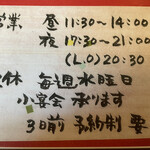 営業 昼 11:30~14:00
夜 17:30~21:00
(L.O) 20:30
定休 毎週水曜日
小宴会 承ります
3日前 予約制 要